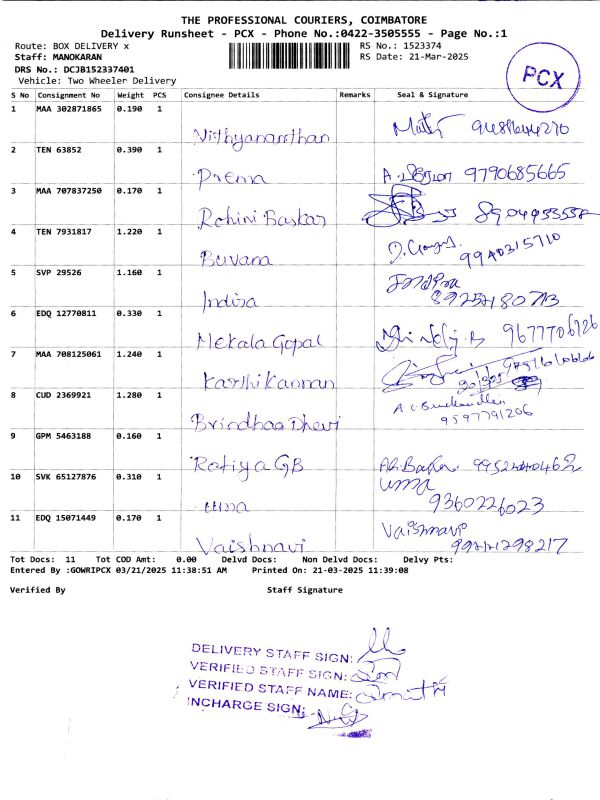 THE PROFESSIONAL COURIERS, COIMBATORE
Delivery Runsheet - PCX - Phone No.:0422-3505555 - Page No.:1
Route: BOX DELIVERY x
RS No.: 1523374
Staff: MANOKARAN
RS Date: 21-Mar-2025
DRS No.: DCJB152337401
Vehicle: Two Wheeler Delivery
PCX
S No Consignment No Weight PCS Consignee Details Remarks Seal & Signature
1 MAA 302871865 0.190 1
Nithyananthan
2 TEN 63852 0.390 1
Prema 9790685665
3 MAA 707837250 0.170 1
Rohini Baskar
4 TEN 7931817 1.220 1
Buvana 9940315710
5 SVP 29526 1.160 1
Indira
6 EDQ 12770811 0.330 1
Mekala Gopal 9677706126
7 MAA 708125061 1.240 1
Karthikannan
8 CUD 2369921 1.280 1
Brindhaa Dhevi 9597791206
9 GPM 5463188 0.160 1
Ratiya GB
10 SVK 65127876 0.310 1 uma
uma 9360226023
11 EDQ 15071449 0.170 1 Vaishnavi
Vaishnavi
Tot Docs: 11 Tot COD Amt: 0.00 Delvd Docs: Non Delvd Docs: Delvy Pts:
Entered By :GOWRIPCX 03/21/2025 11:38:51 AM Printed On: 21-03-2025 11:39:08
Verified By Staff Signature
DELIVERY STAFF SIGN:
VERIFIED STAFF SIGN:
VERIFIED STAFF NAME:
INCHARGE SIGN: